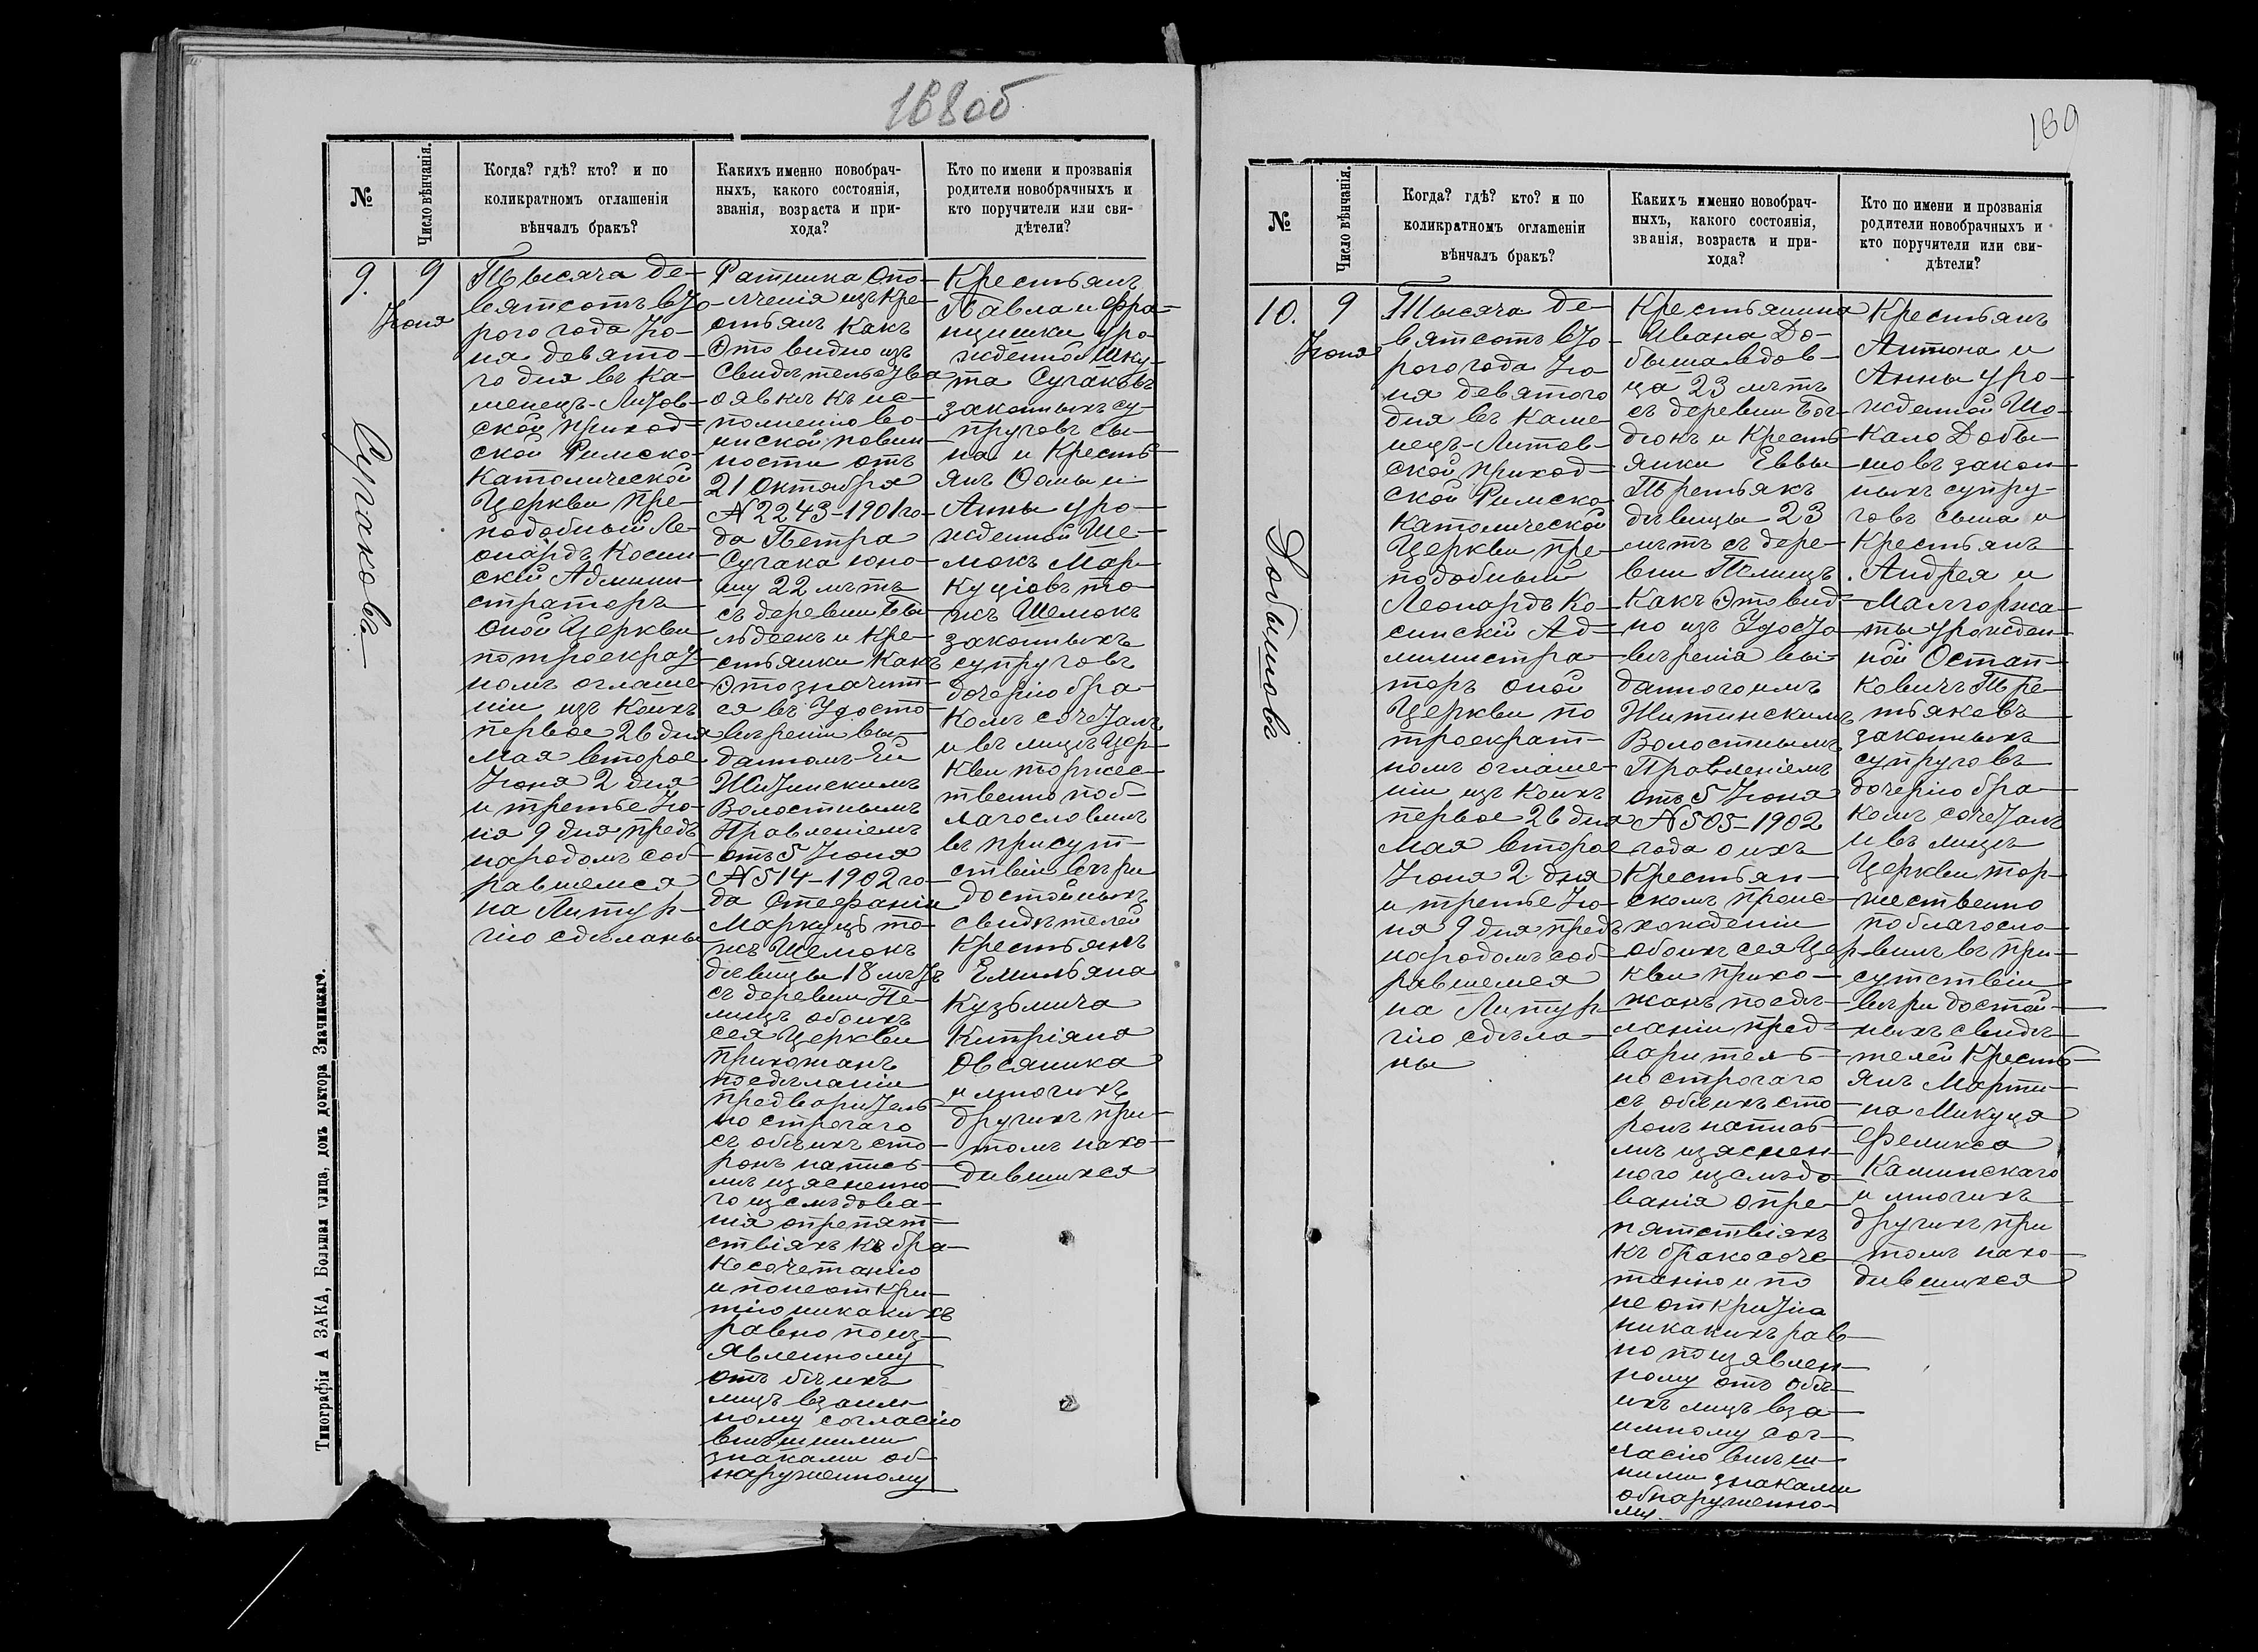 168 об
№
Число вѣнчанія.
Когда? гдѣ? кто? и по
коликратномъ оглашеніи
вѣнчалъ бракъ?
Какихъ именно новобрач-
ныхъ, какого состоянія,
званія, возраста и при-
хода?
Кто по имени и прозванія
родители новобрачныхъ и
кто поручители или сви-
дѣтели?
9.
9
Іюня
Сугаковъ
Тысяча де-
вятсотъ вто-
рого года Ію-
ня девято-
го дня въ Ка-
менецъ-Литов-
ской приход-
ской Римско-
Католической
Церкви пре-
подобный Ле-
онардъ Косин-
скій Админи-
страторъ
оной Церкви
по троекрат
номъ оглаше-
ніи изъ коихъ
первое 26 дня
Мая второе
Іюня 2 дня
и третье Ію-
ня 9 дня предъ
народомъ соб-
равшемся
на Литур-
гію сдѣланы
Ратника опо-
лченія изъ кре-
стьянъ какъ
это видно изъ
Свидѣтельства
о явкѣ къ ис-
полненію во-
инской повин-
ности отъ
21 Октября
№ 2243-1901 го-
да Петра
Сугака юно-
шу 22 лѣтъ
съ деревни Бы-
льдеекъ и Кре-
стьянки какъ
это значит-
ся въ Удосто
вѣреніи вы-
данномъ ей
Житинскимъ
Волостнымъ
Правленіемъ
отъ 5 Іюня
№ 514-1902 го-
да Стефаніи
Маркуцъ то-
жъ Шемокъ
дѣвицы 18 лѣтъ
съ деревни Пе-
лищъ обоихъ
сея Церкви
прихожанъ
по сдѣланіи
предваритель
но строгаго
съ обѣихъ сто-
ронъ на пись-
мѣ изясненно-
го изслѣдова-
нія о препят-
ствіяхъ къ бра-
косочетанію
и по неоткры-
тію никакихъ
равно по из-
явленному
отъ обѣихъ
лицъ взаим-
ному согласію
внѣшними
знаками об-
наруженному
Крестьянъ
Павла и Фра-
нцишки уро-
жденной Шку-
та Сугаковъ
законныхъ су-
пруговъ сы-
на и Кресть-
янъ Ѳомы и
Анны уро-
жденной Ше-
мокъ Мар-
куціовъ то-
жъ Шемокъ
законныхъ
супруговъ
дочерію бра-
комъ сочеталъ
и въ лицѣ Цер-
кви торжес-
твенно поб-
лагословилъ
въ присут-
ствіи вѣри
достойныхъ
свидѣтелей
Крестьянъ
Емильяна
Кузьмича
Кипріяна
Овсяника
и многихъ
другихъ при
томъ нахо-
дившихся
Типографія А ЗАКА, Большая улица, домъ доктора Значинскаго.
169
№
Число вѣнчанія.
Когда? гдѣ? кто? и по
коликратномъ оглашеніи
вѣнчалъ бракъ?
Какихъ именно новобрач-
ныхъ, какого состоянія,
званія, возраста и при-
хода?
Кто по имени и прозванія
родители новобрачныхъ и
кто поручители или сви-
дѣтели?
10.
9
Іюня
Добышовъ
Тысяча де-
вятсотъ вто-
рого года Ію-
ня девятого
дня въ Каме
нецъ-Литов-
ской приход-
ской Римско
Католической
Церкви пре-
подобный
Леонардъ Ко-
синскій Ад-
министра-
торъ оной
Церкви по
троекрат-
номъ оглаше-
ніи изъ коихъ
первое 26 дня
Мая второе
Іюня 2 дня
и третье Ію-
ня 9 дня предъ
народомъ соб-
равшемся
на Литур-
гію сдѣла-
ны
Крестьянина
Ивана До-
быша вдов-
ца 23 лѣтъ
съ деревни Бог-
дюкъ и Кресть-
янки Еввы
Третьякъ
дѣвицы 23
лѣтъ съ дере-
вни Пелищъ.
Какъ это вид-
но изъ Удосто
вѣренія вы-
данного имъ
Житинскимъ
Волостнымъ
Правленіемъ
отъ 5 Іюня
№ 505-1902
года о ихъ
Крестьян-
скомъ проис-
хожденіи
обоихъ сея Цер-
кви прихо-
жанъ по сдѣ-
ланіи пред-
варитель-
но строгаго
съ обѣихъ сто-
ронъ на пись-
мѣ изяснен-
ного изслѣдо-
ванія о пре-
пятствіяхъ
къ бракосоче
танію и по
не открытіа
никакихъ рав-
но по изявлен-
ному отъ обѣ-
ихъ лицъ вза-
имному сог-
ласію внѣш-
ними знаками
обнаруженно-
му.
Крестьянъ
Антона и
Анны уро-
жденной Шо-
кало Добы-
шовъ закон-
ныхъ супру-
говъ сына и
Крестьянъ
Андрея и
Малгоржа-
ты урожден-
ной Остап-
ковичъ Тре-
тьяковъ
законныхъ
супруговъ
дочерію бра-
комъ сочеталъ
и въ лицѣ
Церкви тор-
жественно
поблагосло-
вилъ въ при-
сутствіи
вѣри достой-
ныхъ свидѣ-
телей Кресть-
янъ Марти-
на Микуця
Феликса
Каминскаго
и многихъ
другихъ при
томъ нахо-
дившихся